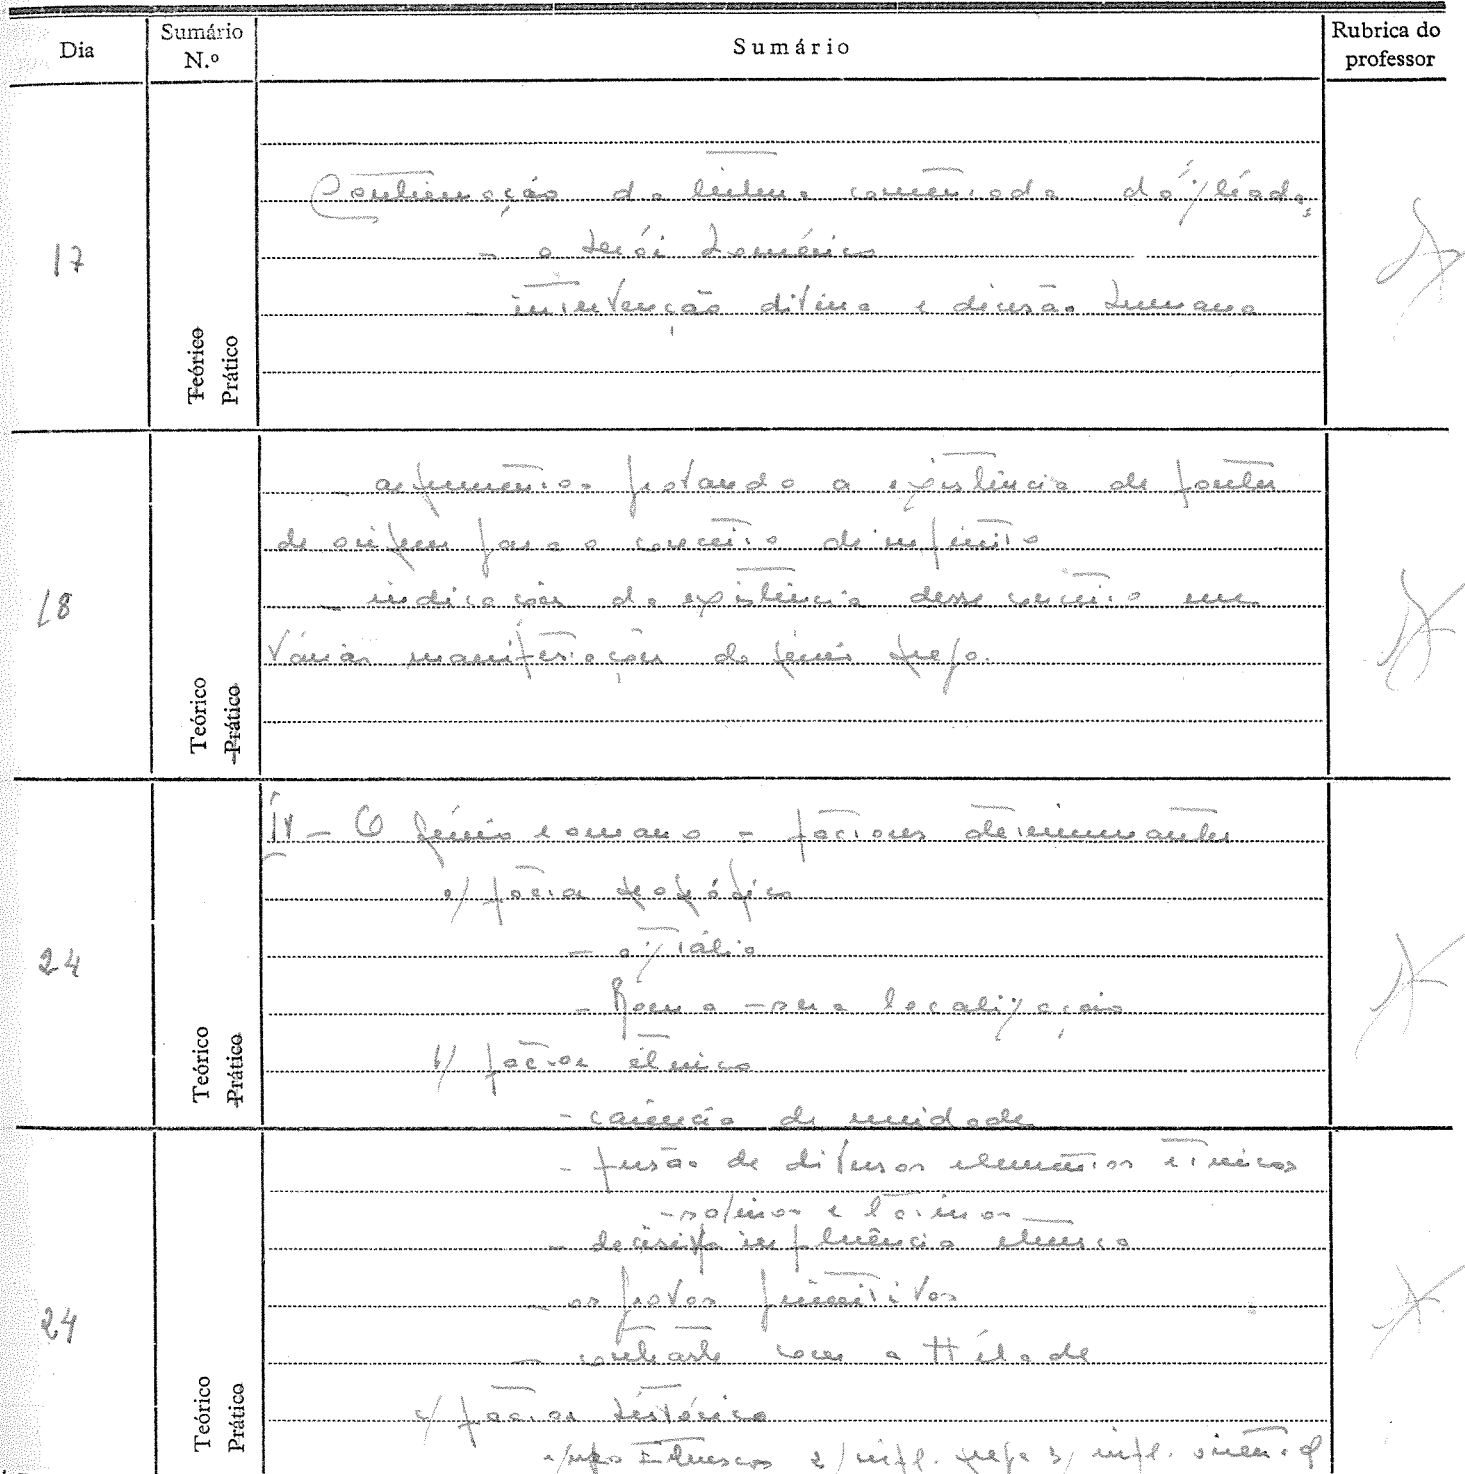 Dia Sumário N.º Sumário Rubrica do professor
17
Teórico Prático
Continuação da leitura comentada da Ilíada,
- o herói homérico
- intervenção divina e decisão humana
18
Teórico Prático
- argumentos provando a existência de fontes
de origem para o conceito de infinito
- indicações da existência desse conceito em
várias manifestações do génio grego.
24
Teórico Prático
IV - O génio romano - factores determinantes
a/ factor geográfico
- a Itália
- Roma - sua localização
b/ factor étnico
- carência de unidade
24
Teórico Prático
- fusão de diversos elementos étnicos
- sabinos e latinos
- decisiva influência etrusca
- os povos primitivos
- contraste com a Hélade
c/ factor histórico
Etruscos 2/ infl. grega 3/ infl. oriental